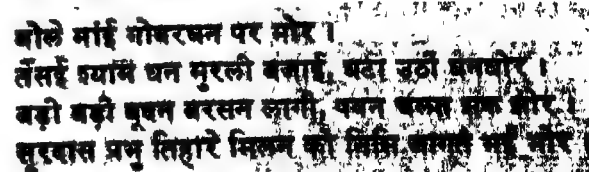 बोले मांई गोवरधन पर मोर ।
तैंसई श्याम धन मुरली बजाई, घटा उठी घनघोर ।
बड़ी बड़ी बूंघन बरसन लागी, पवन चलत झक झोर ।
सूरदास प्रभु तिहारे मिलन को निसि जागत भई भोर ।